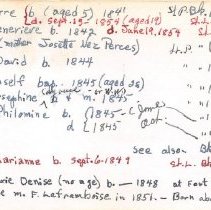 rre b (aged 5) 1841 St.P. Bk.
d. Sept. 15 - 1854 (aged 19) St. L.
enevieve b. 1842 d. June 19, 1854 St.
(mother Josette Nez Perces) St. P. "
David b. 1844 "
self bap. 1845 (aged 26) "
osephine b & m. 1845 "
Philomine b. (1845 - "
d (1845 "
See also B
arianne b. Sept. 6 - 1849 St. L. Bk
rie Denise (no age) b. — 1848 at Fort
e m. F. Laframboise in 1851. - Born abo